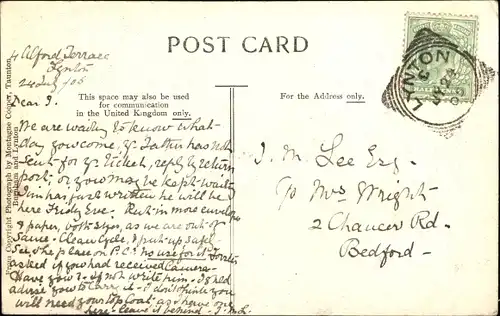 POST CARD
4 Alford Terrace
Lynton
24 July /06
This space may also be used
for communication
in the United Kingdom only.
For the Address only.
From Copyright Photograph by Montague Cooper, Taunton,
Burnham and Lynton
Dear J.
We are waiting to know what
day you come, yr Father has not
sent for yr ticket, reply by return
post, or you may be kept waiting
Jim has just written he will be
here Friday Eve. Put in more envelopes
& paper, both sizes, as we are out of
same. Clean Cycle, & put up safe
See the place on P.C. no use for it
asked if you had received Camera
Have you? If not write him. I shd
advise you to carry it. I don't think you
will need your top coat, as I have one
here. leave it behind. J.M.L.
J. M. Lee Esq.
c/o Mrs Wright
2 Chaucer Rd.
Bedford
LYNTON